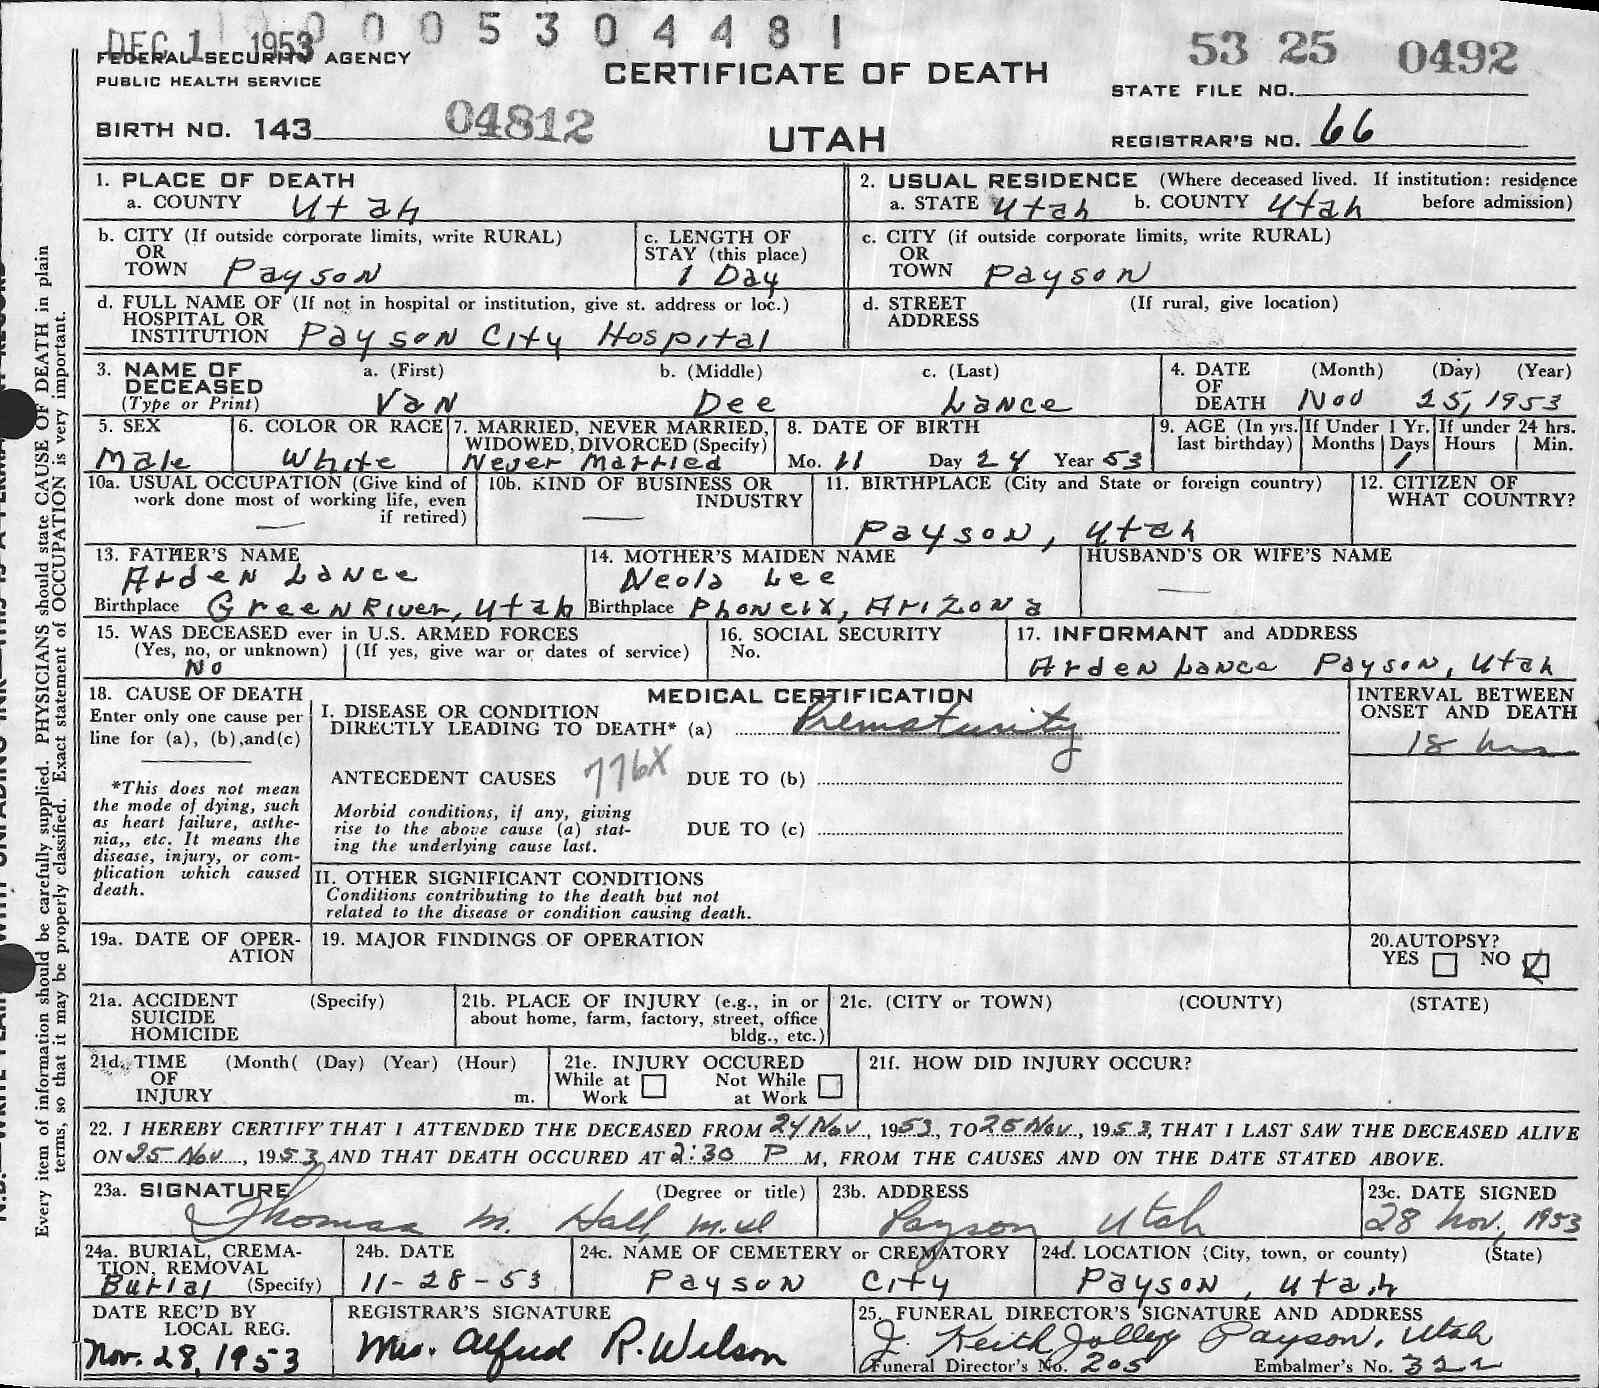 DEC 1 1953
0 0 0 5 3 0 4 4 8 1
53 25 0492
FEDERAL SECURITY AGENCY
PUBLIC HEALTH SERVICE
CERTIFICATE OF DEATH
STATE FILE NO.
BIRTH NO. 143 04812
UTAH
REGISTRAR'S NO. 66
1. PLACE OF DEATH
a. COUNTY Utah
2. USUAL RESIDENCE (Where deceased lived. If institution: residence before admission)
a. STATE Utah b. COUNTY Utah
b. CITY (If outside corporate limits, write RURAL)
OR
TOWN Payson
c. LENGTH OF
STAY (this place)
1 Day
c. CITY (if outside corporate limits, write RURAL)
OR
TOWN Payson
d. FULL NAME OF (If not in hospital or institution, give st. address or loc.)
HOSPITAL OR
INSTITUTION Payson City Hospital
d. STREET (If rural, give location)
ADDRESS
3. NAME OF
DECEASED
(Type or Print)
a. (First) b. (Middle) c. (Last)
Van Dee Lance
4. DATE (Month) (Day) (Year)
OF
DEATH Nov 25, 1953
5. SEX
Male
6. COLOR OR RACE
White
7. MARRIED, NEVER MARRIED,
WIDOWED, DIVORCED (Specify)
Never Married
8. DATE OF BIRTH
Mo. 11 Day 24 Year 53
9. AGE (In yrs. last birthday)
If Under 1 Yr. Months Days
1
If under 24 hrs. Hours Min.
10a. USUAL OCCUPATION (Give kind of
work done most of working life, even
if retired)
—
10b. KIND OF BUSINESS OR
INDUSTRY
—
11. BIRTHPLACE (City and State or foreign country)
Payson, Utah
12. CITIZEN OF
WHAT COUNTRY?
13. FATHER'S NAME
Arden Lance
Birthplace Green River, Utah
14. MOTHER'S MAIDEN NAME
Neola Lee
Birthplace Phoneix, Arizona
HUSBAND'S OR WIFE'S NAME
—
15. WAS DECEASED ever in U.S. ARMED FORCES
(Yes, no, or unknown) (If yes, give war or dates of service)
No
16. SOCIAL SECURITY
No.
17. INFORMANT and ADDRESS
Arden Lance Payson, Utah
18. CAUSE OF DEATH
Enter only one cause per
line for (a), (b),and(c)
*This does not mean
the mode of dying, such
as heart failure, asthe-
nia,, etc. It means the
disease, injury, or com-
plication which caused
death.
MEDICAL CERTIFICATION
I. DISEASE OR CONDITION
DIRECTLY LEADING TO DEATH* (a) Prematurity
ANTECEDENT CAUSES 776X DUE TO (b)
Morbid conditions, if any, giving
rise to the above cause (a) stat-
ing the underlying cause last.
DUE TO (c)
INTERVAL BETWEEN
ONSET AND DEATH
18 hrs
II. OTHER SIGNIFICANT CONDITIONS
Conditions contributing to the death but not
related to the disease or condition causing death.
19a. DATE OF OPER-
ATION
19. MAJOR FINDINGS OF OPERATION
20. AUTOPSY?
YES NO
21a. ACCIDENT (Specify)
SUICIDE
HOMICIDE
21b. PLACE OF INJURY (e.g., in or
about home, farm, factory, street, office
bldg., etc.)
21c. (CITY or TOWN) (COUNTY) (STATE)
21d. TIME (Month( (Day) (Year) (Hour)
OF
INJURY m.
21e. INJURY OCCURED
While at Work Not While at Work
21f. HOW DID INJURY OCCUR?
22. I HEREBY CERTIFY THAT I ATTENDED THE DECEASED FROM 24 Nov, 1953, TO 25 Nov, 1953, THAT I LAST SAW THE DECEASED ALIVE
ON 25 Nov, 1953 AND THAT DEATH OCCURED AT 2:30 P M, FROM THE CAUSES AND ON THE DATE STATED ABOVE.
23a. SIGNATURE (Degree or title)
Thomas M. Hall, M.D.
23b. ADDRESS
Payson Utah
23c. DATE SIGNED
28 Nov, 1953
24a. BURIAL, CREMA-
TION, REMOVAL
Burial (Specify)
24b. DATE
11-28-53
24c. NAME OF CEMETERY or CREMATORY
Payson City
24d. LOCATION (City, town, or county) (State)
Payson, Utah
DATE REC'D BY
LOCAL REG.
Nov. 28, 1953
REGISTRAR'S SIGNATURE
Mrs. Alfred R. Wilson
25. FUNERAL DIRECTOR'S SIGNATURE AND ADDRESS
J. Keith Jolley Payson, Utah
Funeral Director's No. 205 Embalmer's No. 322
Every item of information should be carefully supplied. PHYSICIANS should state CAUSE OF DEATH in plain
terms, so that it may be properly classified. Exact statement of OCCUPATION is very important.